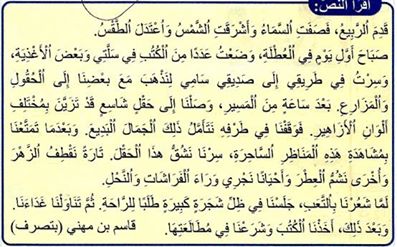 اقرأ النص:
قَدِمَ الرَّبِيعُ، فَصَفَتِ السَّمَاءُ وَأَشْرَقَتِ الشَّمْسُ وَاعْتَدَلَ الطَّقْسُ.
صَبَاحَ أَوَّلِ يَوْمٍ فِي الْعُطْلَةِ، وَضَعْتُ عَدَدًا مِنَ الْكُتُبِ فِي سَلَّتِي وَبَعْضَ الْأَغْذِيَةِ،
وَسِرْتُ فِي طَرِيقِي إِلَى صَدِيقِي سَامِي لِنَذْهَبَ مَعَ بَعْضِنَا إِلَى الْحُقُولِ
وَالْمَزَارِعِ. بَعْدَ سَاعَةٍ مِنَ الْمَسِيرِ، وَصَلْنَا إِلَى حَقْلٍ شَاسِعٍ قَدْ تَزَيَّنَ بِمُخْتَلِفِ
أَلْوَانِ الْأَزَاهِيرِ. فَوَقَفْنَا فِي طَرْفِهِ نَتَأَمَّلُ ذَلِكَ الْجَمَالَ الْبَدِيعَ. وَبَعْدَمَا تَمَتَّعْنَا
بِمُشَاهَدَةِ هَذِهِ الْمَنَاظِرِ السَّاحِرَةِ، سِرْنَا نَشُقُّ هَذَا الْحَقْلَ. تَارَةً نَقْطِفُ الزَّهْرَ
وَأُخْرَى نَشُمُّ الْعِطْرَ وَأَحْيَانًا نَجْرِي وَرَاءَ الْفَرَاشَاتِ وَالنَّحْلِ.
لَمَّا شَعُرْنَا بِالتَّعَبِ، جَلَسْنَا فِي ظِلِّ شَجَرَةٍ كَبِيرَةٍ طَلَبًا لِلرَّاحَةِ. ثُمَّ تَنَاوَلْنَا غَدَاءَنَا.
وَبَعْدَ ذَلِكَ، أَخَذْنَا الْكُتُبَ وَشَرَعْنَا فِي مُطَالَعَتِهَا. قاسم بن مهني (بتصرف)